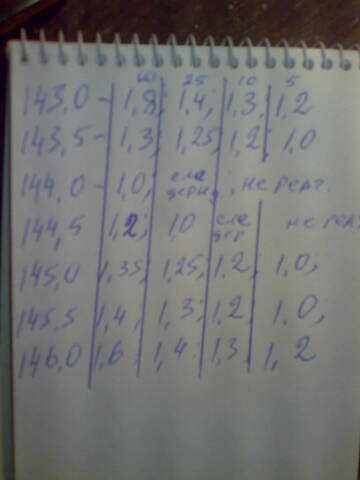 60 25 10 5
143,0 - 1,8; 1,4; 1,3; 1,2
143,5 - 1,3; 1,25; 1,2; 1,0
144,0 - 1,0; сла , не реаг.
144,5 1,2; 1,0 сла не реаг
145,0 1,35; 1,25; 1,2; 1,0;
145,5 1,4; 1,3; 1,2; 1,0;
146,0 1,6 1,4 1,3 1,2